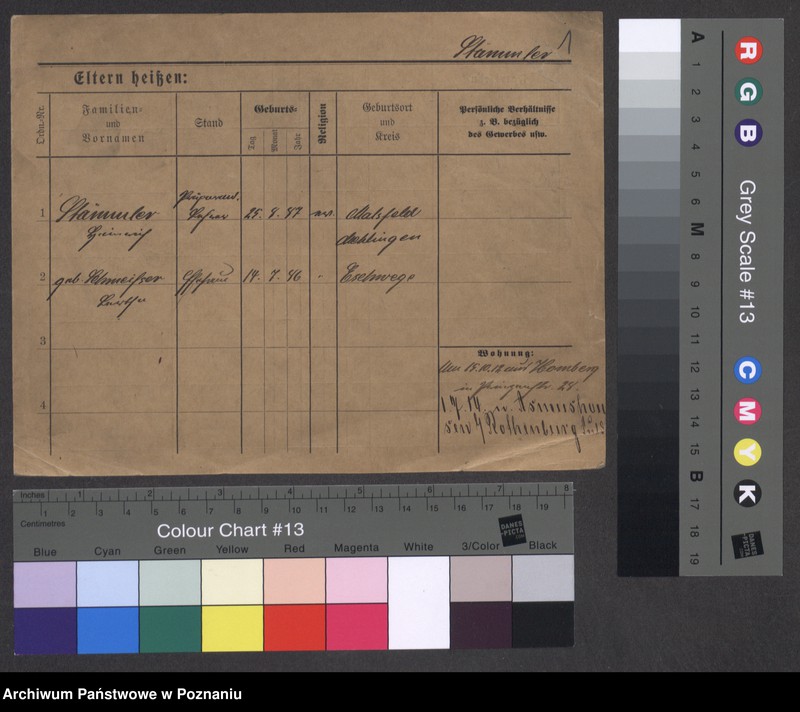 Stämmler 1
Eltern heißen:
Ordn.-Nr.
Familien-
und
Vornamen
Stand
Geburts-
Tag
Monat
Jahr
Religion
Geburtsort
und
Kreis
Persönliche Verhältnisse
z. B. bezüglich
des Gewerbes usw.
1 Stämmler Lehrer 25. 47 ev. Malsfeld
Heinrich Melsungen
2 geb. Ehefrau 14. 7. 46 Eschwege
3
4
Wohnung:
Homberg
28.
Rothenburg
Inches 1 2 3 4 5 6 7 8
1 2 3 4 5 6 7 8 9 10 11 12 13 14 15 16 17 18 19
Centimetres
Colour Chart #13
DANES
PICTA
Blue Cyan Green Yellow Red Magenta White 3/Color Black
A 1 2 3 4 5 6 M 8 9 10 11 12 13 14 15 B 17 18 19
R G B
Grey Scale #13
C M Y K
DANES
PICTA
Archiwum Państwowe w Poznaniu